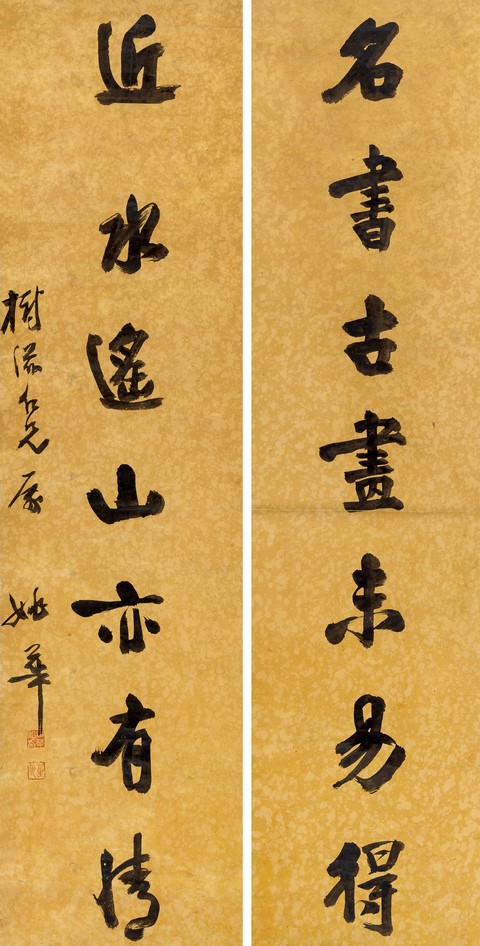 名書古畫未易得
近水遙山亦有情
樹滋仁兄屬
姚華